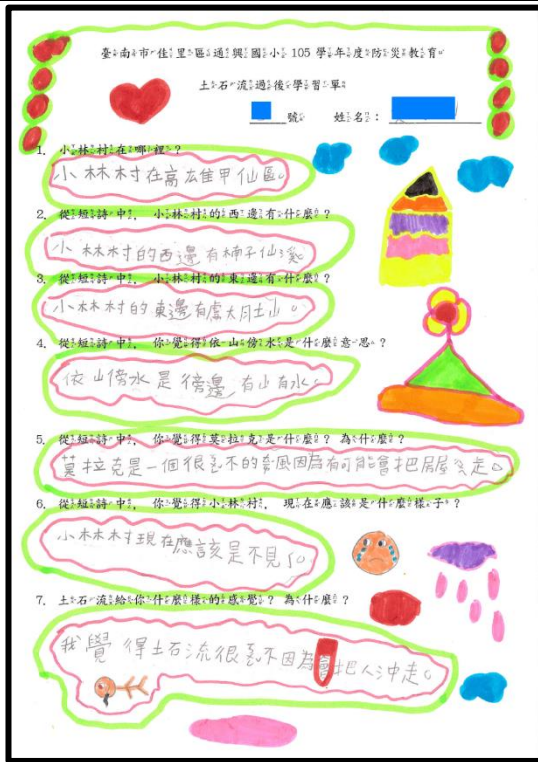 臺南市佳里區通興國小105學年度防災教育
土石流過後學習單
號 姓名：
1. 小林村在哪裡？
小林村在高雄甲仙區。
2. 從短詩中，小林村的西邊有什麼？
小林村的西邊有楠子仙溪
3. 從短詩中，小林村的東邊有什麼？
小林村的東邊有處大月土山。
4. 從短詩中，你覺得依山傍水是什麼意思？
依山傍水是傍邊有山有水。
5. 從短詩中，你覺得莫拉克是什麼？為什麼？
莫拉克是一個很 不的 風因為有可能會把房屋 走。
6. 從短詩中，你覺得小林村，現在應該是什麼樣子？
小林村現在應該是不見了。
7. 土石流給你什麼樣的感覺？為什麼？
我覺得土石流很 不因為會把人沖走。